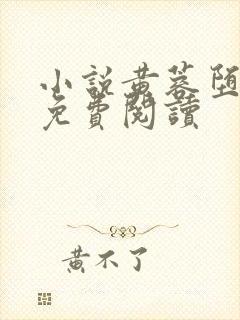 小說黄蓉堕
免費閱讀
黄不了